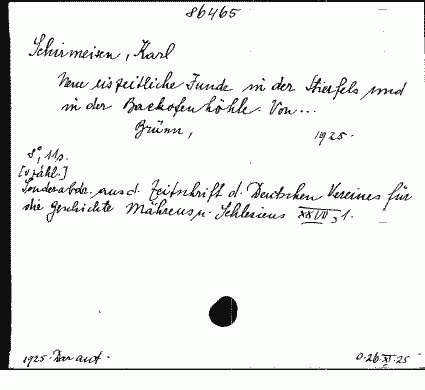 86465
Schirmeisen, Karl
Neue eiszeitliche Funde in der Stierfels und
in der Backofenhöhle. Von...
Brünn, 1925.
8°, 11p.
[0 zähl.]
Sonderabdr. aus d. Zeitschrift d. Deutschen Vereines für
die Geschichte Mährens u. Schlesiens XXVII, 1.
1925. Dar aut. 0.26.XI.25